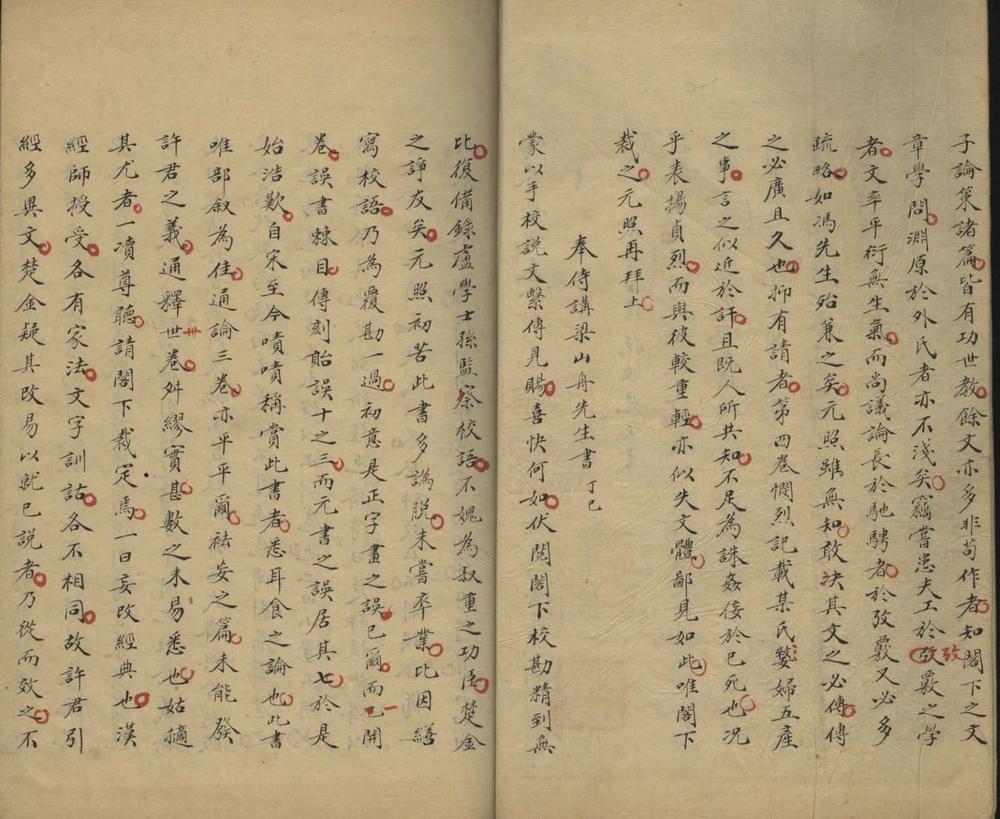 子論策諸篇皆有功世教餘文亦多非苟作者知閣下之文
章學問淵原於外氏者亦不淺矣竊嘗患夫工於攷覈之學
攷
者文率平衍無生氣而尚議論長於馳騁者於攷覈又必多
疏略如馮先生殆兼之矣元照雖無知敢決其文之必傳傳
之必廣且久也抑有請者第四卷憫烈記載某氏嫠婦五產
之事言之似近於訐且既人所共知不足為誅姦佞於已死也況
乎表揚貞烈而與彼較重輕亦似失文體鄙見如此唯閣下
裁之元照再拜上
奉侍講梁山舟先生書 丁巳
蒙以手校說文繫傳見賜喜快何如伏閱閣下校勘精到無
比復備錄盧學士孫監察校語不媿為叔重之功臣楚金
之諍友矣元照初苦此書多譌脫未嘗卒業比因繕
寫校語乃為覆勘一過初意是正字畫之誤已爾而已開
卷誤書棘目傳刻貽誤十之三而元書之誤居其七於是
始浩歎自宋至今嘖嘖稱賞此書者悉耳食之論也此書
唯部敘為佳通論三卷亦平平爾祛妄之篇未能發
許君之義通釋世卷舛繆實甚數之未易悉也姑擿
卅
其尤者一凟尊聽請閣下裁定焉一曰妄改經典也漢
經師授受各有家法文字訓詁各不相同故許君引
經多異文楚金疑其改易以就已說者乃從而效之不